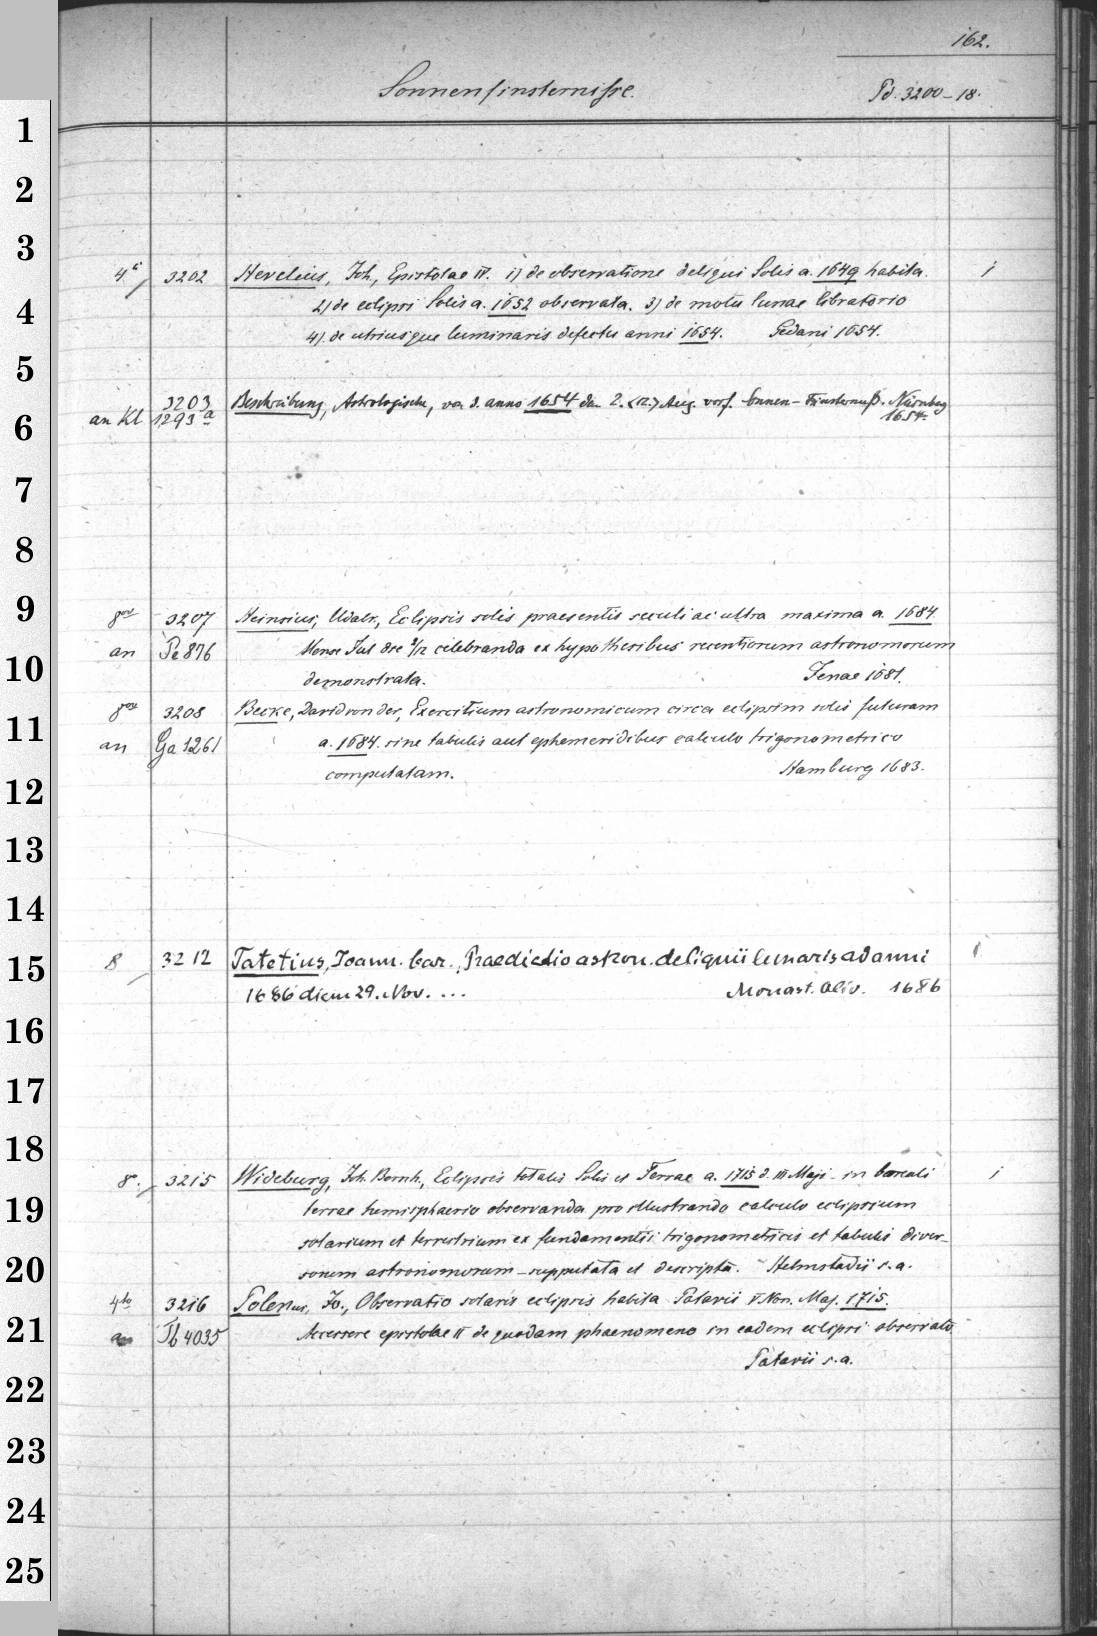 162.
Sonnenfinsternisse. Pd. 3200-18.
1
2
3
4º 3202 Hevelius, Joh., Epistolae IV. 1) de observatione deliqui Solis a. 1649 habita. 1
4 2) de eclipsi Solis a. 1652 observata. 3) de motu lunae libratorio
4). de utriusque luminaris defectu anni 1654. Gedani 1654.
5
3203 Beschreibung, Astrologische, von d. anno 1654 den 2. (12.) Aug. vorf. Sonnen-Finsternuß. Nürnberg
6 an Kl 1293a 1654.
7
8
9 8vo 3207 Heinsius, Udalr., Eclipsis solis praesentis seculi ac ultra maxima a. 1684
10 an Pe 876 Mense Jul. die 2/12 celebranda ex hypothesibus recentiorum astronomorum
demonstrata. Jenae 1681.
11 8vo 3208 Becke, David von der, Exercitium astronomicum circa eclipsim solis futuram
an Ga 1261 a. 1684. sine tabulis aut ephemeridibus calculo trigonometrico
12 computatam. Hamburg 1683.
13
14
15 8 3212 Tatetius, Joann. Car., Praedictio astron. deliquii lunaris ad anni 1
1686 diem 29. Nov. ... Monast. Oliv. 1686
16
17
18
8º. 3215 Wideburg, Joh. Bernh., Eclipsis totalis Solis et Terrae a. 1715 d. III Maji in boreali 1
19 terrae hemisphaerio observanda pro illustrando calculo eclipsium
solarium et terrestrium ex fundamentis trigonometricis et tabulis diver-
20 sorum astronomorum supputata et descripta. Helmstadii s. a.
4to 3216 Polenus, Jo., Observatio solaris eclipsis habita Patavii V. Non. Maj. 1715.
21 an Tb 4035 Accessere epistolae II de quodam phaenomeno in eadem eclipsi observato
Patavii s. a.
22
23
24
25